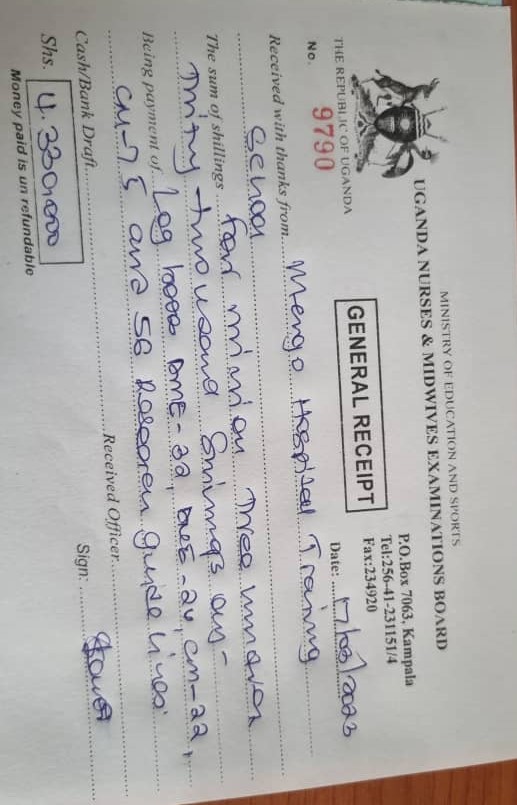 MINISTRY OF EDUCATION AND SPORTS
UGANDA NURSES & MIDWIVES EXAMINATIONS BOARD
P.O.Box 7063, Kampala
Tel:256-41-231151/4
Fax:234920
THE REPUBLIC OF UGANDA
GENERAL RECEIPT
No. 9790
Date: 17/05/2023
Received with thanks from Mengo Hospital Training
School
The sum of shillings Four million Three hundred
Thirty thousand Shillings only
Being payment of Log books DME-22, CM-22,
CM-75 and 56 Research guide lines
Cash/Bank Draft Received Officer
Shs. 4.330,000 Sign:
Money paid is un refundable